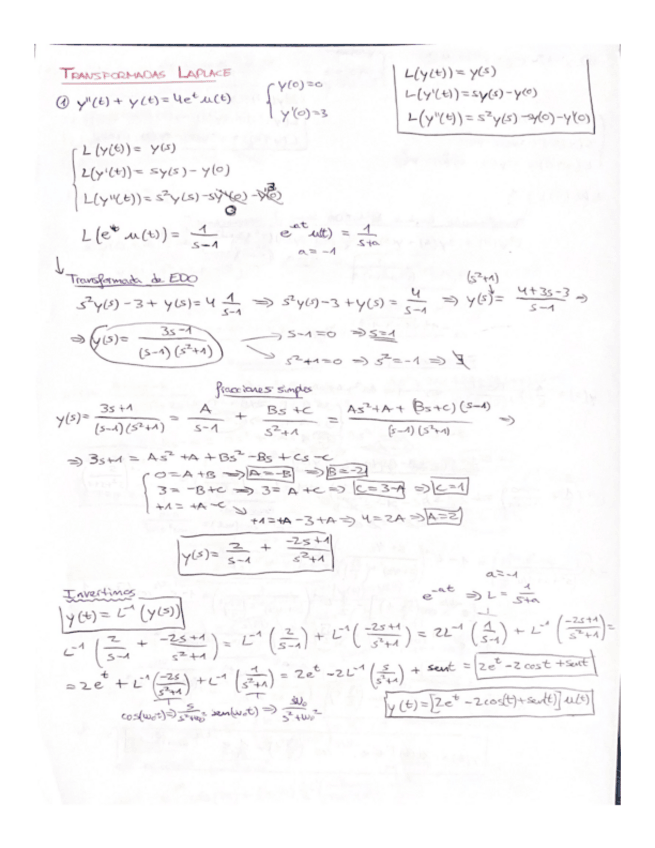 TRANSFORMADAS LAPLACE
① y''(t) + y(t) = 4e^t u(t) { y(0)=0
y'(0)=3
L(y(t)) = y(s)
L(y'(t)) = sy(s) - y(0)
L(y''(t)) = s²y(s) - sy(0) - y'(0)
L(y(t)) = y(s)
L(y'(t)) = sy(s) - y(0)
L(y''(t)) = s²y(s) - sy(0) - y'(0)
0 3
L(e^t u(t)) = 1/(s-1) e^-at u(t) = 1/(s+a)
a = -1
↓ Transformada de EDO
s²y(s) - 3 + y(s) = 4 1/(s-1) ⇒ s²y(s) - 3 + y(s) = 4/(s-1) ⇒ (s²+1) y(s) = (4+3s-3)/(s-1) ⇒
⇒ y(s) = (3s-1)/((s-1)(s²+1)) → s-1=0 ⇒ s=1
→ s²+1=0 ⇒ s²=-1 ⇒ ∄
fracciones simples
y(s) = (3s+1)/((s-1)(s²+1)) = A/(s-1) + (Bs+C)/(s²+1) = (As²+A+(Bs+C)(s-1))/((s-1)(s²+1)) ⇒
⇒ 3s+1 = As² + A + Bs² - Bs + Cs - C
0 = A+B ⇒ A=-B ⇒ B=-2
3 = -B+C ⇒ 3 = A+C ⇒ C=3-A ⇒ C=1
+1 = +A-C ↘
+1 = +A-3+A ⇒ 4=2A ⇒ A=2
y(s) = 2/(s-1) + (-2s+1)/(s²+1)
Invertimos
a=-1
e^-at ⇒ L = 1/(s+a)
y(t) = L^-1 (y(s))
L^-1 (2/(s-1) + (-2s+1)/(s²+1)) = L^-1 (2/(s-1)) + L^-1 ((-2s+1)/(s²+1)) = 2L^-1 (1/(s-1)) + L^-1 ((-2s+1)/(s²+1)) =
= 2e^t + L^-1 (-2s/(s²+1)) + L^-1 (1/(s²+1)) = 2e^t - 2L^-1 (s/(s²+1)) + sent = 2e^t - 2cost + sent
cos(w₀t) ⇒ s/(s²+w₀²) sen(w₀t) ⇒ w₀/(s²+w₀²)
y(t) = [2e^t - 2cos(t) + sen(t)] u(t)